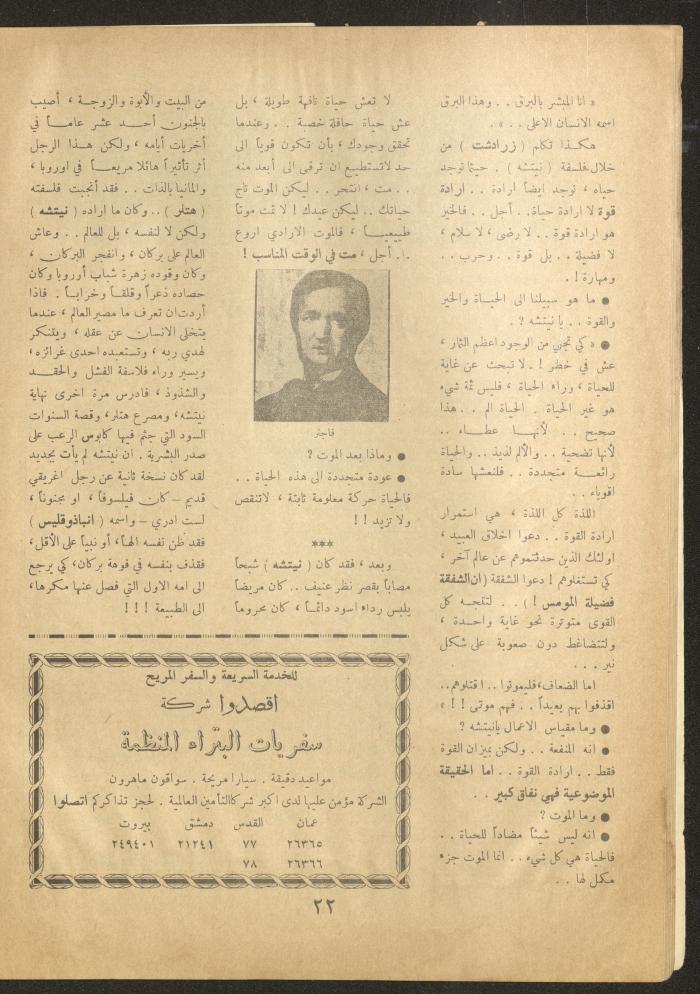 « انا المبشر بالبرق . . وهذا البرق
اسمه الانسان الاعلى . . » .
هكذا تكلم ( زرادشت ) من
خلال فلسفة ( نيتشه ) . حيثما توجد
حياه ، توجد ايضاً ارادة . . ارادة
قوة لا ارادة حياة . أجل . . فالخير
هو ارادة قوة . . لا رضى ، لا سلام ،
لا فضيلة . . بل قوة . . وحرب . .
ومهارة ! .
● ما هو سبيلنا الى الحياة والخير
والقوة . . يا نيتشه ؟ .
● « كي تجني من الوجود اعظم الثمار ،
عش في خطر ! . لا تبحث عن غاية
للحياة ، وراء الحياة ، فليس ثمة شيء
هو غير الحياة . الحياة الم . . هذا
صحيح . . لأنها عطاء . .
لأنها تضحية . . والألم لذيذ . . والحياة
رائعة متجددة . . فلنعشها سادة
اقوياء . .
اللذة كل اللذة ، هي استمرار
ارادة القوة . . دعوا اخلاق العبيد ،
اولئك الذين حدثتموهم عن عالم آخر ،
كي تستغلوهم ! دعوا الشفقة ( ان الشفقة
فضيلة المومس ! ) . . لتتجه كل
القوى متوترة نحو غاية واحدة ،
ولتتضاغط دون صعوبة على شكل
نير . . .
اما الضعاف، فليموتوا . . اقتلوهم..
اقذفوا بهم بعيداً . . فهم موتى ! ! »
● وما مقياس الاعمال يا نيتشه ؟
● انه المنفعة . . ولكن بميزان القوة
فقط . . ارادة القوة . . اما الحقيقة
الموضوعية فهي نفاق كبير . .
● وما الموت ؟
● انه ليس شيئاً مضاداً للحياة . .
فالحياة هي كل شيء . . انما الموت جزء
مكمل لها . .
لا تعش حياة تافهة طويلة ، بل
عش حياة حافلة خصبة . . وعندما
تحقق وجودك ، بأن تكون قوياً الى
حد لا تستطيع ان ترقى الى أبعد منه
. . مت ، انتحر . . ليكن الموت تاج
حياتك . . ليكن عيدك ! لا تمت موتاً
طبيعياً ، فالموت الارادي اروع
. ا. أجل ، مت في الوقت المناسب !
فاجنر
● وماذا بعد الموت ؟
● عودة متجددة الى هذه الحياة . .
فالحياة حركة معلومة ثابتة ، لا تنقص
ولا تزيد ! !
***
وبعد ، فقد كان ( نيتشه ) شبحاً
مصاباً بقصر نظر عنيف . . كان مريضاً
يلبس رداء اسود دائماً ، كان محروماً
من البيت والأبوة والزوجة ، أصيب
بالجنون أحد عشر عاماً في
أخريات أيامه ، ولكن هذا الرجل
أثر تأثيراً هائلا مريعاً في اوروبا ،
والمانيا بالذات . . فقد أنجبت فلسفته
( هتلر ) .. وكان ما اراده ( نيتشه )
ولكن لا لنفسه ، بل للعالم . . وعاش
العالم على بركان ، وانفجر البركان ،
وكان وقوده زهرة شباب أوروبا وكان
حصاده ذعراً وقلقاً وخراباً . فاذا
أردت ان تعرف ما مصير العالم ، عندما
يتخلى الانسان عن عقله ، ويتنكر
لهدي ربه ، وتستعبده احدى غرائزه ،
ويسير وراء فلاسفة الفشل والحقد
والشذوذ ، فادرس مرة اخرى نهاية
نيتشه ، ومصرع هتلر ، وقصة السنوات
السود التي جثم فيها كابوس الرعب على
صدر البشرية . ان نيتشه لم يأت بجديد
لقد كان نسخة ثانية عن رجل اغريقي
قديم – كان فيلسوفاً ، او مجنوناً ،
لست ادري – واسمه ( انباذوقليس )
فقد ظن نفسه الهاً، أو نبياً على الأقل،
فقذف بنفسه في فوهة بركان، كي يرجع
الى امه الاول التي فصل عنها مكرها،
الى الطبيعة ! ! !
للخدمة السريعة والسفر المريح
اقصدوا شركة
سفريات البتراء المنظمة
مواعيد دقيقة . سيارا مريحة . سواقون ماهرون
الشركة مؤمن عليها لدى اكبر شركاالتأمين العالمية . لحجز تذاكركم اتصلوا
عمان القدس دمشق بيروت
٢٦٣٦٥ ٧٧ ٢١٢٤١ ٢٤٩٤٠١
٢٦٣٦٦ ٧٨
٢٢